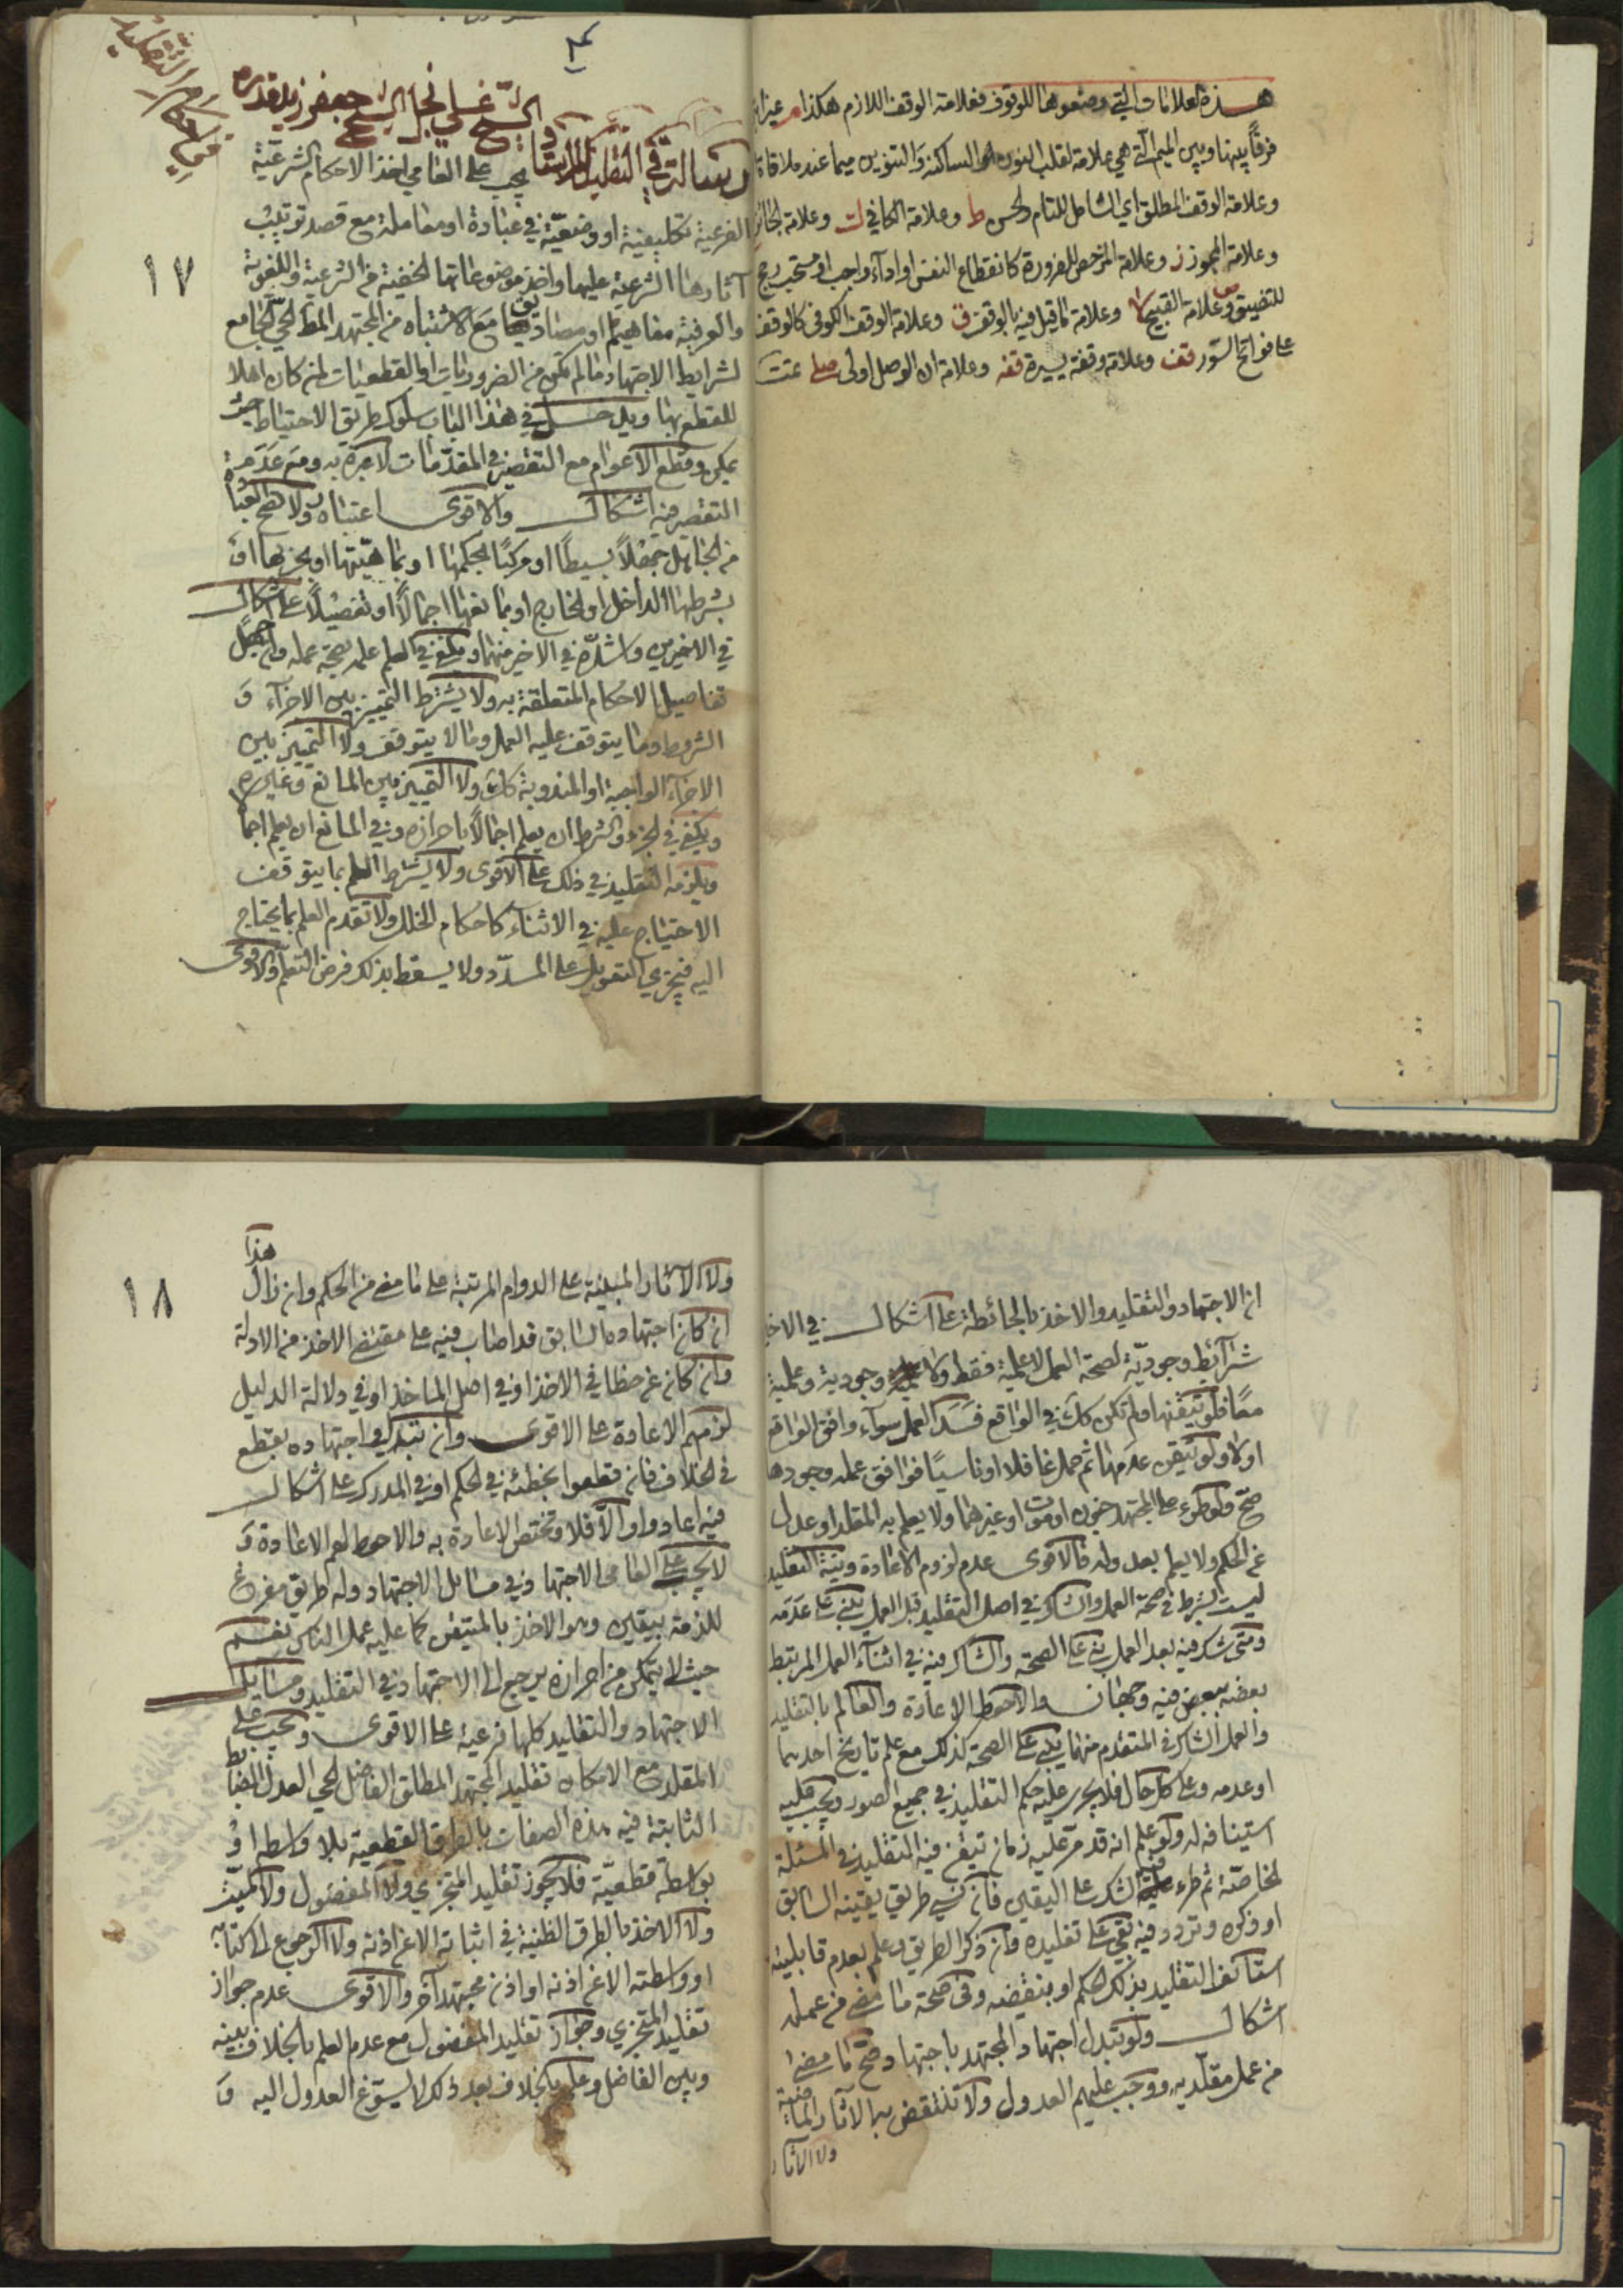 هذه العلامات التي وضعوها للوقوف فعلامة الوقف اللازم هكذا م
فرقاً بينها وبين الميم التي هي علامة لقلب النون الساكنة والتنوين ميما عند ملاقاة
وعلامة الوقف المطلق اي الشامل للتام والحسن ط وعلامة الكافي ك وعلامة الجائز
وعلامة المجوز ز وعلامة المرخص للضرورة كانقطاع النفس او اداء واجب او مستحب
للتضيق وعلامة القبيح لا وعلامة ما قيل فيه بالوقف ق وعلامة الوقف الكوفي كالوقف
على فواتح السور قف وعلامة وقفة يسيرة قفه وعلامة ان الوصل اولى صلى تمت
الشيخ جعفر
رسالة في التقليد
يجب على العامي اخذ الاحكام الشرعية
الفرعية تكليفية او وضعية في عبادة او معاملة مع قصد ترتيب
١٧
آثارها الشرعية عليها واخذ موضوعاتها الخفية من الشرعية واللغوية
والعرفية مفاهيم او مصاديق مع الاشتباه من المجتهد المطلق الحي الجامع
لشرايط الاجتهاد ما لم تكن من الضروريات او القطعيات لمن كان اهلا
للقطع بها ويدخل في هذا الباب سلوك طريق الاحتياط حيث
يمكن وقطع الاعوام مع التقصير في المقدمات لا عبرة به ومع عدم
التقصير فيه اشكال والاقوى اعتباره ولا تصح العبادة
من الجاهل جهلاً بسيطاً او مركباً بحكمها او بماهيتها او بجزئها او
بشرطها الداخل او الخارج او بمانعها اجمالاً او تفصيلاً على اشكال
في الاخيرين واشده في الاخير منهما ويكفي في العلم علم صحة عمله وان جهل
تفاصيل الاحكام المتعلقة به ولا يشترط التمييز بين الاجزاء و
الشروط وما يتوقف عليه العمل وما لا يتوقف ولا التمييز بين
الاجزاء الواجبة او المندوبة كك ولا التمييز بين المانع وغيره
ويكفي في الجزء والشرط ان يعلم اجمالاً باحرازه وفي المانع ان يعلم اجما
ويلزمه التقليد في ذلك على الاقوى ولا يشترط العلم بما يتوقف
الاحتياج عليه في الاثناء كاحكام الخلل ولا تقدم العلم بما يحتاج
اليه فيجزي التعويل على المسدد ولا يسقط بذلك فرض التعلم والاقوى
ان الاجتهاد والتقليد والاخذ بالحائطة على اشكال في الاخير
شرائط وجودية لصحة العمل لا علمية فقط ولا وجودية وعلمية
معاً فلو تيقنها ولم تكن كك في الواقع فسد العمل سواء وافق الواقع
اولا ولو تيقن عدمها ثم عمل غافلا او ناسياً فوافق عمله وجودها
صح ولو طرء على المجتهد جنون او موت او غيرهما ولا يعلم به المقلد او عدل
عن الحكم ولا يعلم بعدوله فالاقوى عدم لزوم الاعادة ونية التقليد
ليست شرط في صحة العمل والشاك في اصل التقليد قبل العمل يبني على عدمه
ومتى شك فيه بعد العمل بنى على الصحة والشاك فيه في اثناء العمل المرتبط
بعضه ببعض فيه وجهان والاحوط الاعادة والعالم بالتقليد
والعمل الشاك في المتقدم منهما يبني على الصحة كذلك مع علم تاريخ احدهما
او عدمه وعلى كل حال فلا يجري عليه حكم التقليد في جميع الصور ويجب عليه
استينافه له ولو علم انه قد مر عليه زمان تيقن فيه التقليد في المسئلة
الخاصة ثم طرء فيه الشك على اليقين فان نسي طريق يقينه السابق
او ذكره وتردد فيه بقي على تقليده وان ذكر الطريق وعلم بعدم قابليته
استأنف التقليد بذلك الحكم او بنقيضه وفي صحة ما مضى من عمله
اشكال ولو تبدل اجتهاد المجتهد باجتهاد صح ما مضى
من عمل مقلديه ووجب عليهم العدول ولا تنتقض به الآثار الماضية
ولا الآثار
هذا
ولا الآثار المبنية على الدوام المرتبة على ما مضى من الحكم وان زال
١٨
ان كان اجتهاده السابق قد اصاب فيه على مقتضى الاخذ من الادلة
وان كان عن خطا في الاخذ او في اصل الماخذ او في دلالة الدليل
لزمهم الاعادة على الاقوى وان تبدل اجتهاده بقطع
في الخلاف فان قطعوا بخطئه في الحكم او في المدرك على اشكال
فيه اعادوا والا فلا وتختص الاعادة به والاحوط لهم الاعادة و
لا يجب على العامي الاجتهاد في مسائل الاجتهاد وله طريق مفرغ
للذمة بيقين وهو الاخذ بالمتيقن كما عليه عمل الناس نعم
حيث لا يتمكن من احرازه يرجع الى الاجتهاد في التقليد ومسايل
الاجتهاد والتقليد كلها فرعية على الاقوى ويجب على
المقلد مع الامكان تقليد المجتهد المطلق الفاضل الحي العدل الضابط
الثابتة فيه هذه الصفات بالطرق القطعية بلا واسطه او
بواسطة قطعية فلا يجوز تقليد المتجزي ولا المفضول ولا الميت
ولا الاخذ بالطرق الظنية في اثباته الا عن اذنه ولا الرجوع الى كتابه
او واسطته الا عن اذنه او اذن مجتهد آخر والاقوى عدم جواز
تقليد المتجزي وجواز تقليد المفضول مع عدم العلم بالخلاف بينه
وبين الفاضل وعلم الخلاف بعد ذلك لا يسوغ العدول اليه و